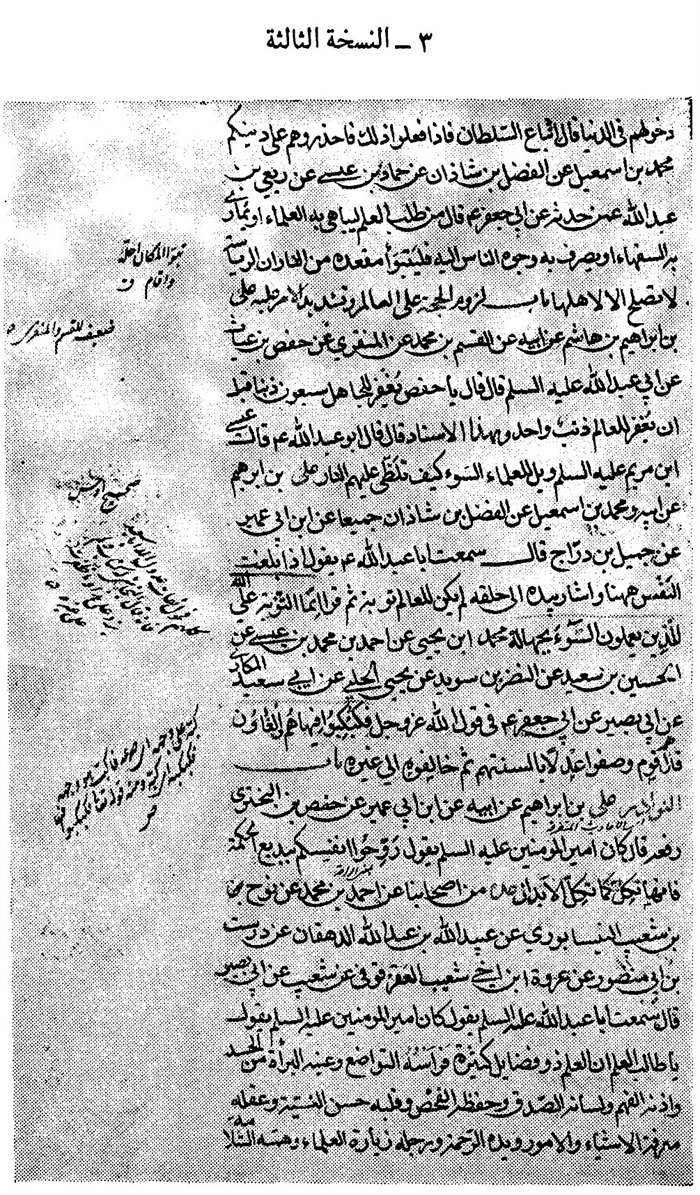 ٣ ــ النسخة الثالثة
دخولهم في الدنيا قال اتباع السلطان فاذا فعلوا ذلك فاحذروهم على دينكم
محمد بن اسمعيل عن الفضل بن شاذان عن حماد بن عيسى عن ربعي بن
عبد الله عمن حدثه عن ابي جعفر ع م قال من طلب العلم ليباهي به العلماء او يماري
به السفهاء او يصرف به وجوه الناس اليه فليتبوأ مقعده من النار ان الرياسة
لا تصلح الا لاهلها باب لزوم الحجة على العالم وتشديد الامر عليه علي
بن ابراهيم بن هاشم عن ابيه عن القسم بن محمد عن المنقري عن حفص بن غياث
عن ابي عبد الله عليه السلم قال قال يا حفص يغفر للجاهل سبعون ذنبا قبل
ان يغفر للعالم ذنب واحد وبهذا الاسناد قال قال ابو عبد الله ع م قال عيسى
ابن مريم عليه السلم ويل للعلماء السوء كيف تلظى عليهم النار علي بن ابرهيم
عن ابيه ومحمد بن اسمعيل عن الفضل بن شاذان جميعا عن ابن ابي عمير
عن جميل بن دراج قال سمعت ابا عبد الله ع م يقول اذا بلغت
النفس ههنا واشار بيده الى حلقه لم يكن للعالم توبة ثم قرا انما التوبة على الله
للذين يعملون السوء بجهالة محمد ابن يحيى عن احمد بن محمد بن عيسى عن
الحسين بن سعيد عن النضر بن سويد عن يحيى الحلبي عن ابي سعيد المكاري
عن ابي بصير عن ابي جعفر ع م في قول الله عز وجل فكبكبوا فيها هم والغاوون
قال هم قوم وصفوا عدلا بالسنتهم ثم خالفوه الى غيره باب
النوادر علي بن ابراهيم عن ابيه عن ابن ابي عمير عن حفص بن البختري
رفعه قال كان امير المومنين عليه السلم يقول روحوا انفسكم ببديع الحكمة
فانها تكل كما تكل الابدان عدة من اصحابنا عن احمد بن محمد عن نوح
بن شعيب النيسابوري عن عبيد الله بن عبد الله الدهقان عن درست
بن ابي منصور عن عروة ابن اخي شعيب العقرقوفي عن شعيب عن ابي بصير
قال سمعت ابا عبد الله عليه السلم يقول كان امير المومنين عليه السلم يقول
يا طالب العلم ان العلم ذو فضايل كثيرة فراسه التواضع وعينه البرأة من الحسد
واذنه الفهم ولسانه الصدق وحفظه الفحص وقلبه حسن النية وعقله
معرفة الاشياء والامور ويده الرحمة ورجله زيارة العلماء وهمته السلامة
تبوأ المكان احله
واقام ق
ضعيف للقسم والمنقري